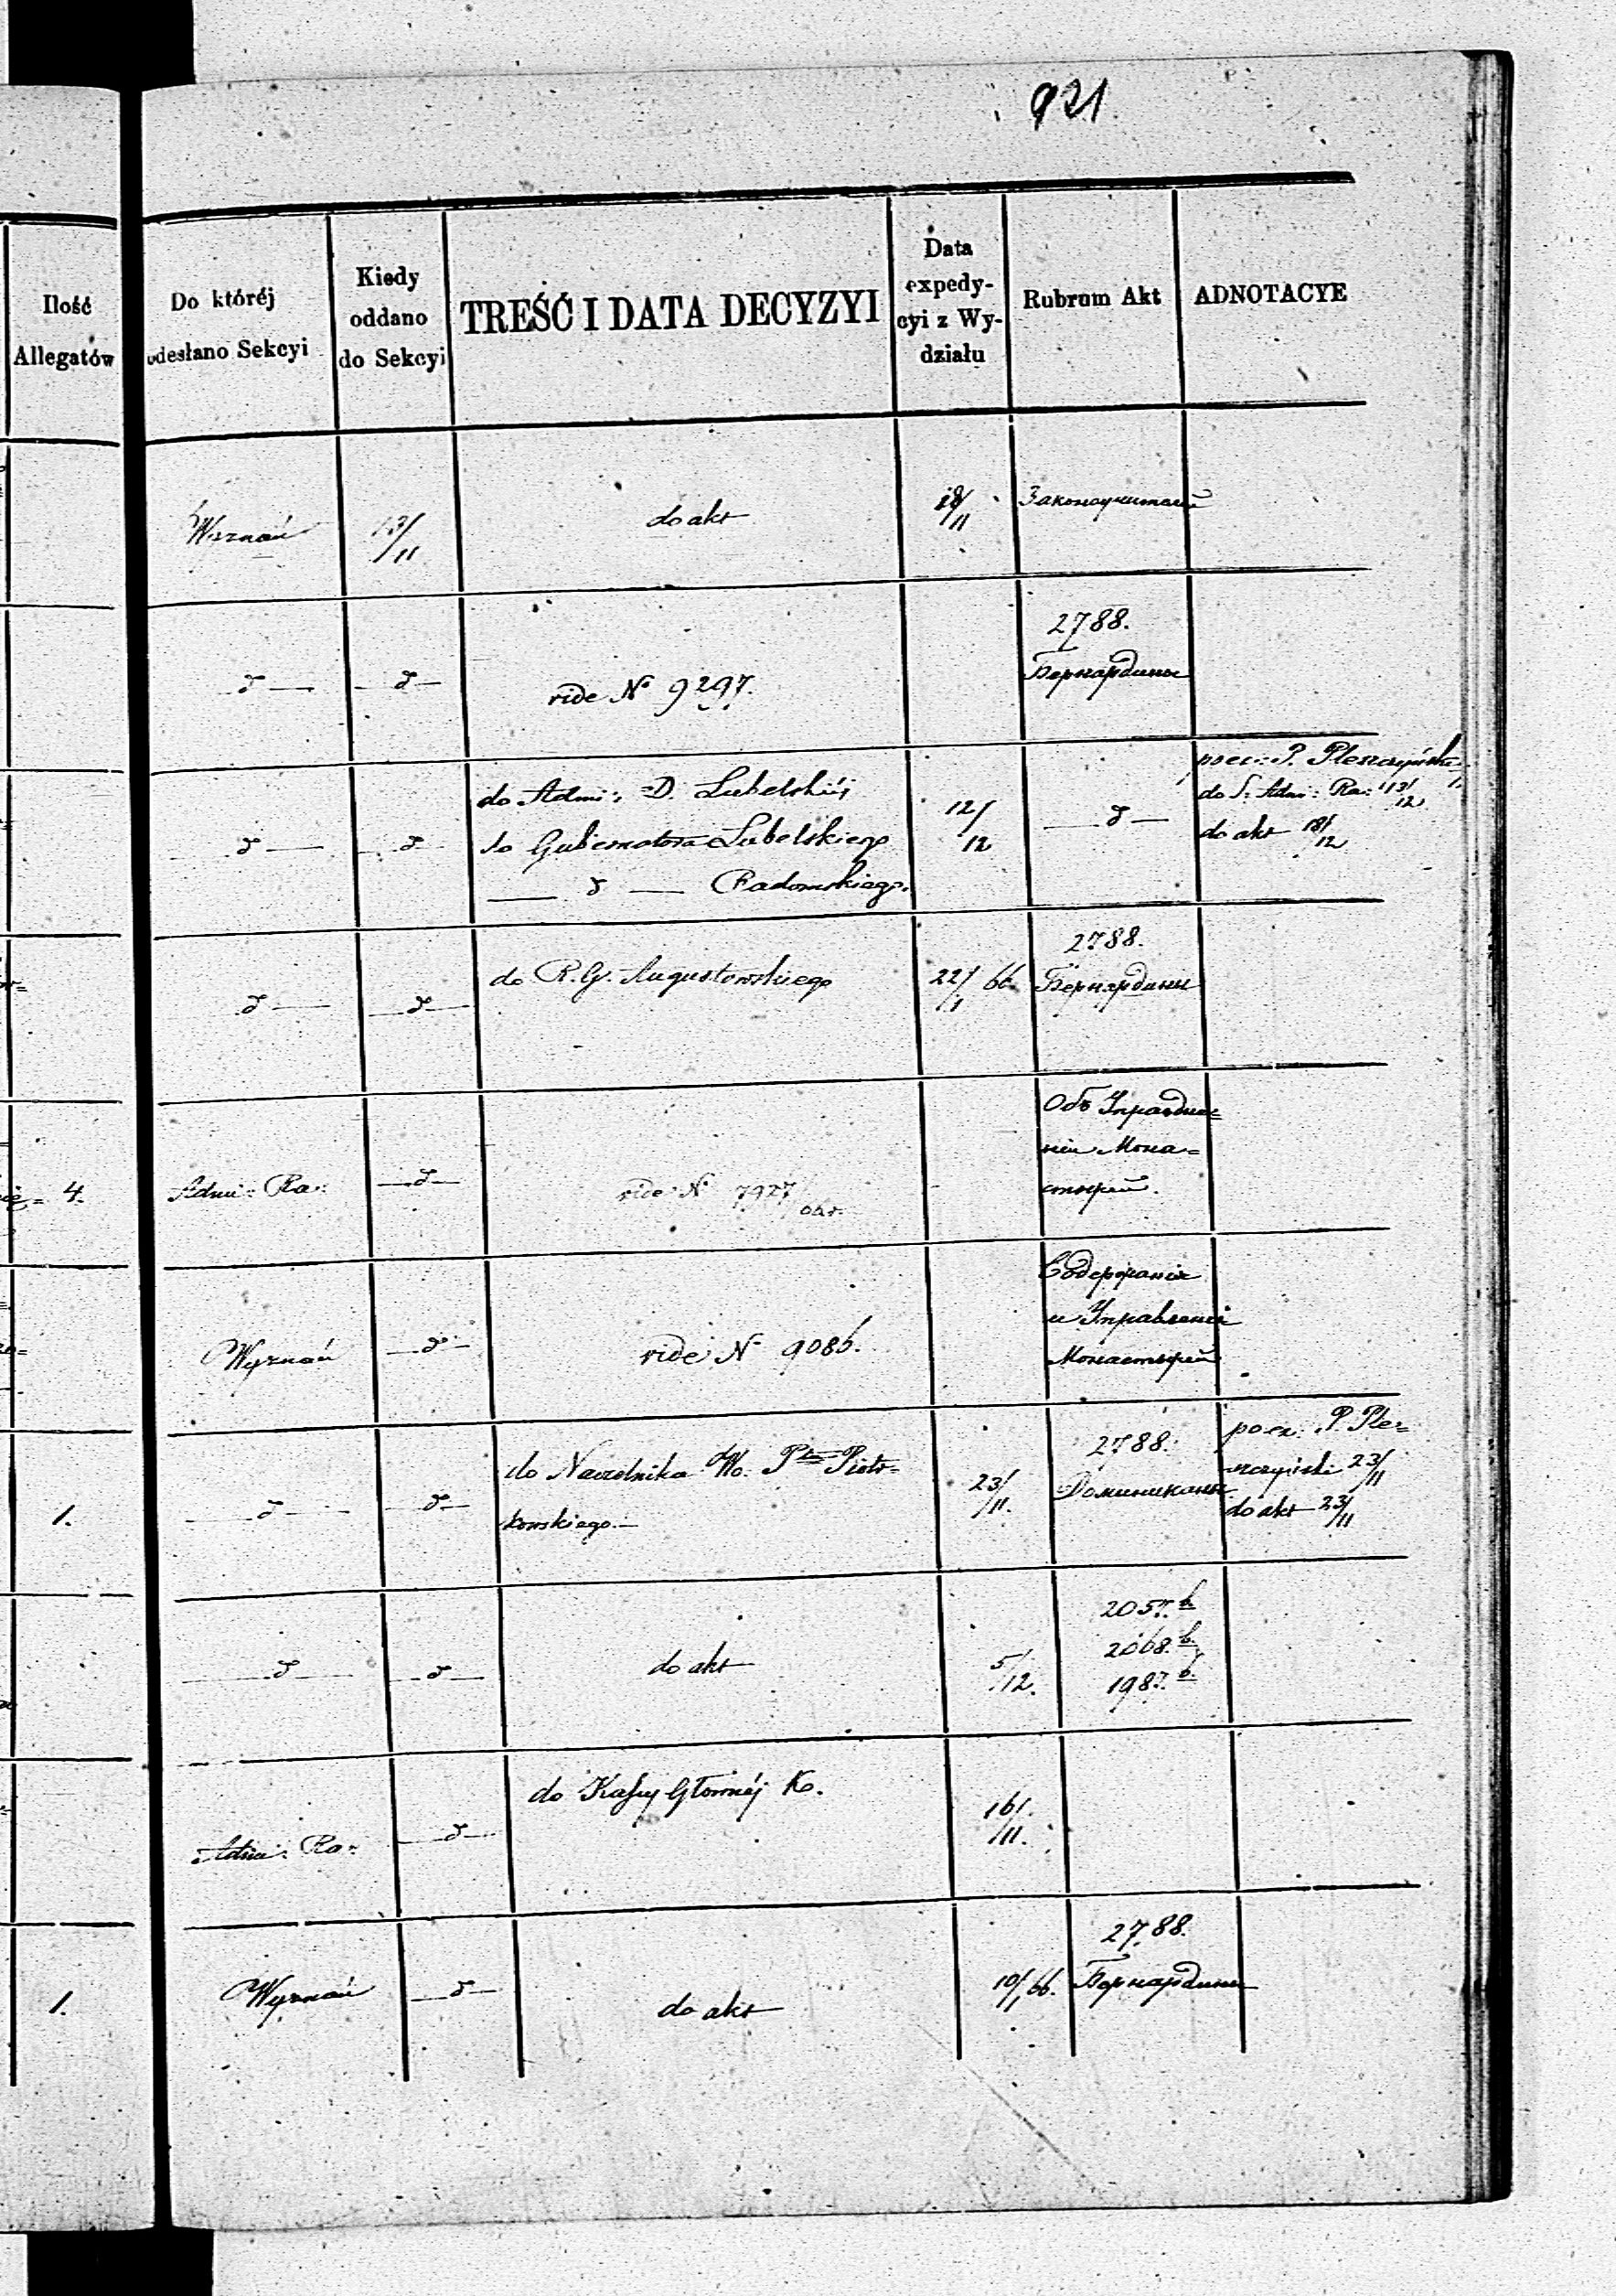 921
Ilość
Allegatów
Do któréj
odesłano Sekcyi
Kiedy
oddano
do Sekcyi
TREŚĆ I DATA DECYZYI
Data
expedy-
cyi z Wy-
działu
Rubrum Akt
ADNOTACYE
Wyznań 13/11 do akt 18/11
ð ð vide № 9297. 2788.
Бернардины
ð ð do Admi: D. Lubelskiéj
do Gubernatora Lubelskiego
ð Radomskiego.
12/12 ð
do S: Admi: Ra: 13/12
do akt 18/12
ð ð do R. G. Augustowskiego 22/1 66. 2788.
Бернардины
4. Admi: Ra: ð vide № 7927 Объ Упраздне=
ніи Мона=
стырей.
Wyznań ð vide № 9086. Содержанія
и Управленія
Монастырей
1. ð ð do Naczelnika Wo. Ptu Piotr=
kowskiego.
23/11. 2788.
Доминиканы
po ex. P. Ple=
szczyński 23/11
do akt 23/11
ð ð do akt 5/12. 2057. b.
2068. b.
1987. b.
Admi: Ra: ð do Kassy Głównéj K. 16/11.
1. Wyznań ð do akt 10/1 66. 2788.
Бернардины